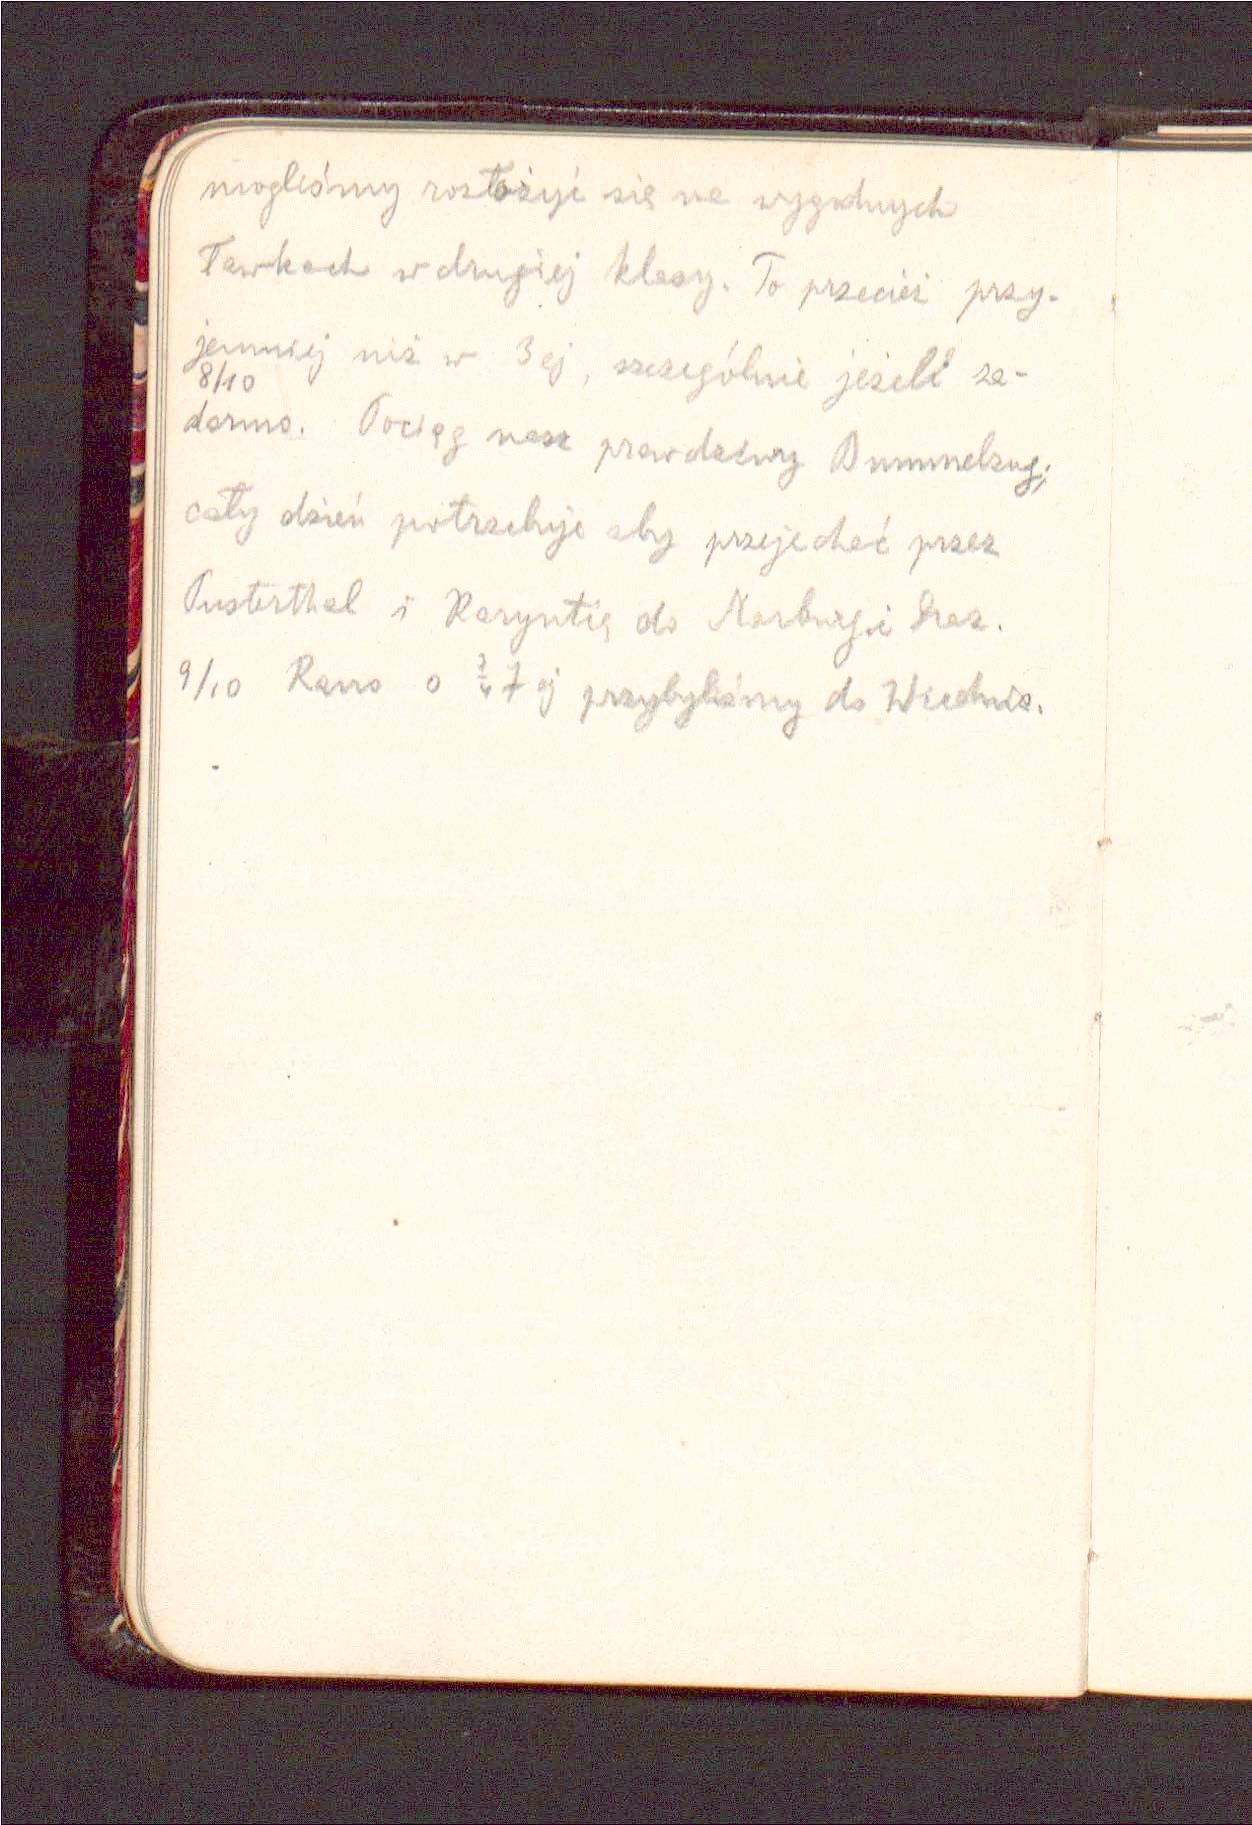 mogliśmy rozłożyć się na wygodnych
ławkach w drugiej klasy. To przecież przy-
jemniej niż w 3ej, szczególnie jeżeli za-
8/10
darmo. Pociąg nasz prawdziwy Bummelzug;
cały dzień potrzebuje aby przejechać przez
Pusterthal i Karyntię do Marburg i Graz.
9/10 Rano o ¾ 7 ej przybyliśmy do Wiednia.